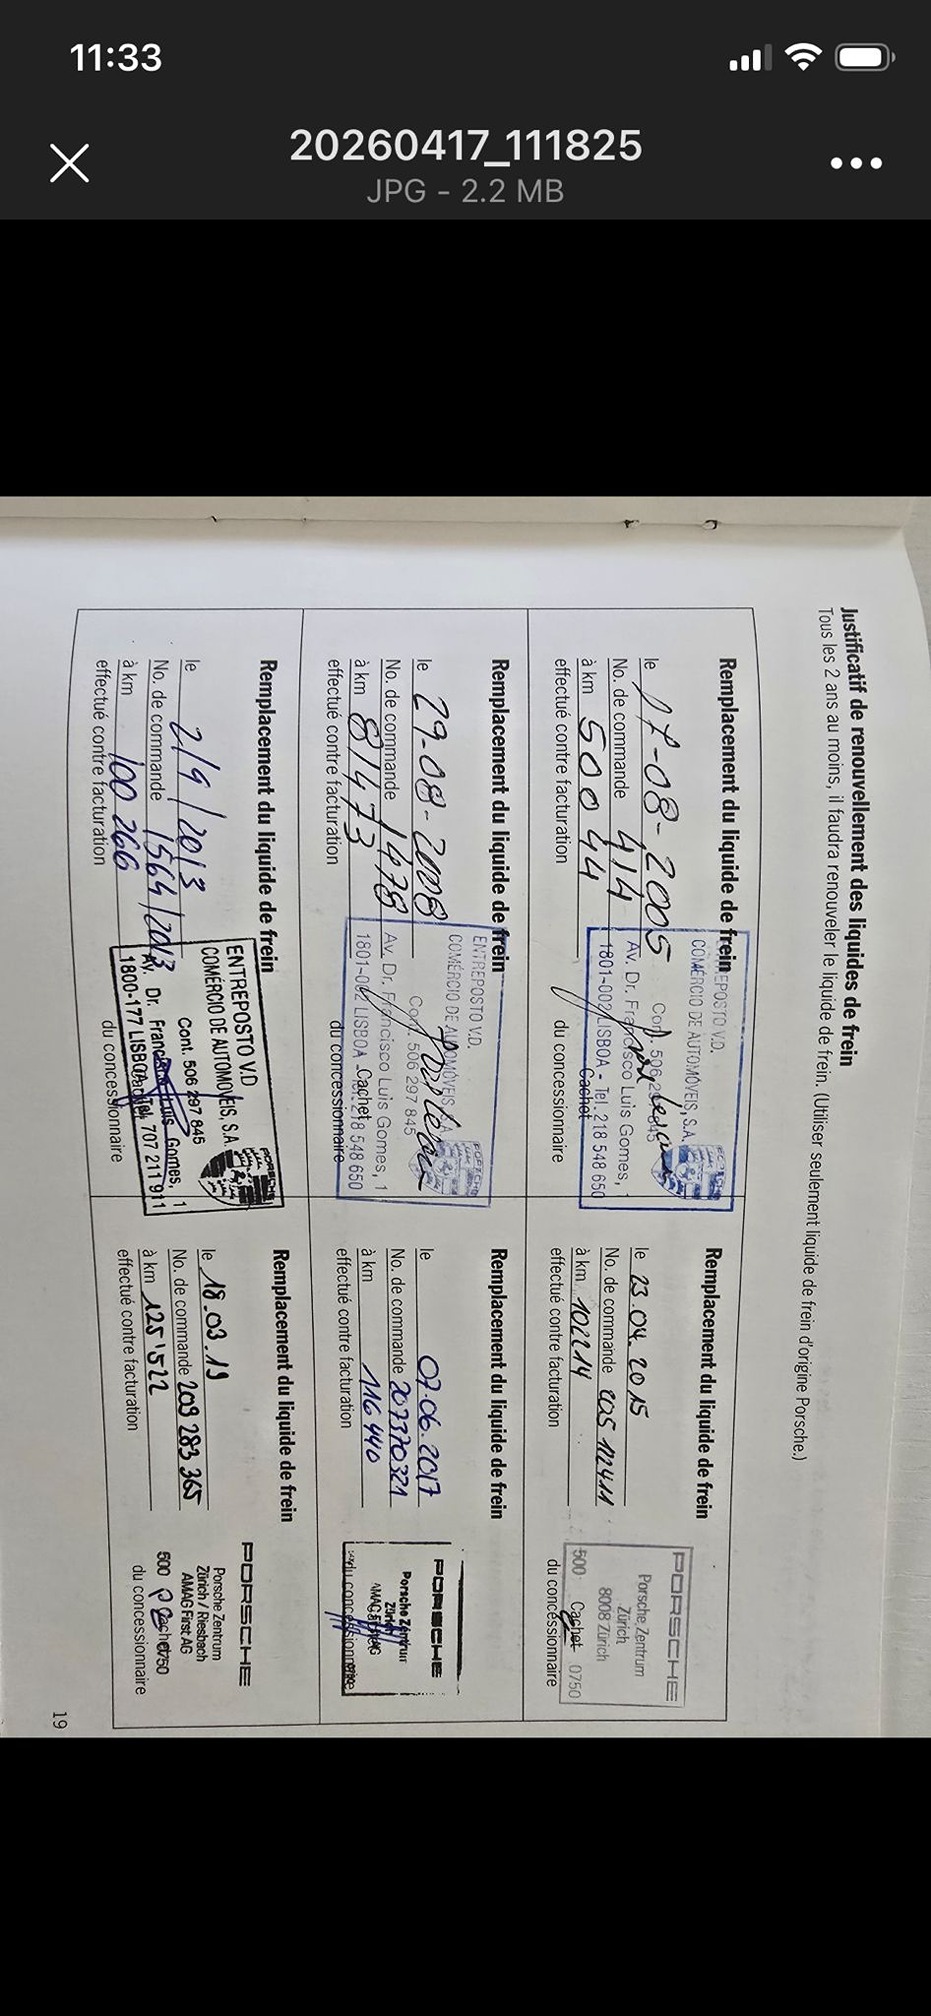 11:33
20260417_111825
JPG - 2.2 MB
Justificatif de renouvellement des liquides de frein
Tous les 2 ans au moins, il faudra renouveler le liquide de frein. (Utiliser seulement liquide de frein d'origine Porsche.)
Remplacement du liquide de frein
le 17-08-2005
No. de commande 414
à km 50044
effectué contre facturation
EPOSTO V.D.
COMÉRCIO DE AUTOMÓVEIS, S.A.
Av. Dr. Francisco Luis Gomes, 1
1801-002 LISBOA - Tel. 218 548 650
Cachet
du concessionnaire
Remplacement du liquide de frein
le 23.04.2015
No. de commande 205 112411
à km 102214
effectué contre facturation
PORSCHE
Porsche Zentrum
Zürich
8008 Zürich
500 Cachet 0750
du concessionnaire
Remplacement du liquide de frein
le 29-08-2008
No. de commande 1478
à km 81473
effectué contre facturation
ENTREPOSTO V.D.
COMÉRCIO DE AUTOMÓVEIS, S.A.
Cont. 506 297 845
Av. Dr. Francisco Luis Gomes, 1
1801-002 LISBOA Cachet 218 548 650
du concessionnaire
Remplacement du liquide de frein
le 07.06.2017
No. de commande 207370321
à km 116440
effectué contre facturation
PORSCHE
Porsche Zentrum
Zürich
du concessionnaire
Remplacement du liquide de frein
le 2/9/2013
No. de commande 1564/2013
à km 100 266
effectué contre facturation
ENTREPOSTO V.D
COMÉRCIO DE AUTOMÓVEIS, S.A.
PORSCHE
Cont. 506 297 845
Av. Dr. Francisco Luis Gomes, 1
1800-177 LISBOA Tel. 707 211 911
du concessionnaire
Remplacement du liquide de frein
le 18.03.19
No. de commande 209 283 365
à km 125'522
effectué contre facturation
PORSCHE
Porsche Zentrum
Zürich / Riesbach
AMAG First AG
500 Cachet 0750
du concessionnaire
19